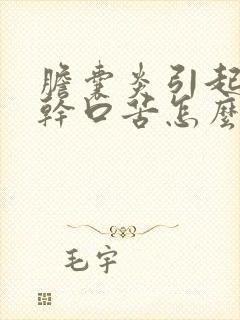 膽囊炎引起
幹口苦怎麼
毛宇